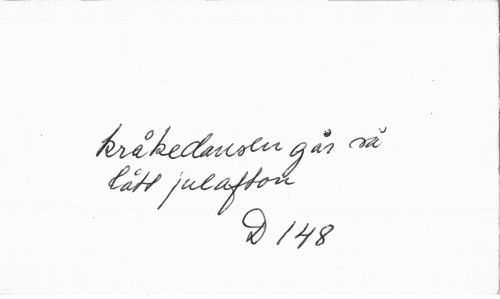 kråkedansen går så
lätt julafton
D 148